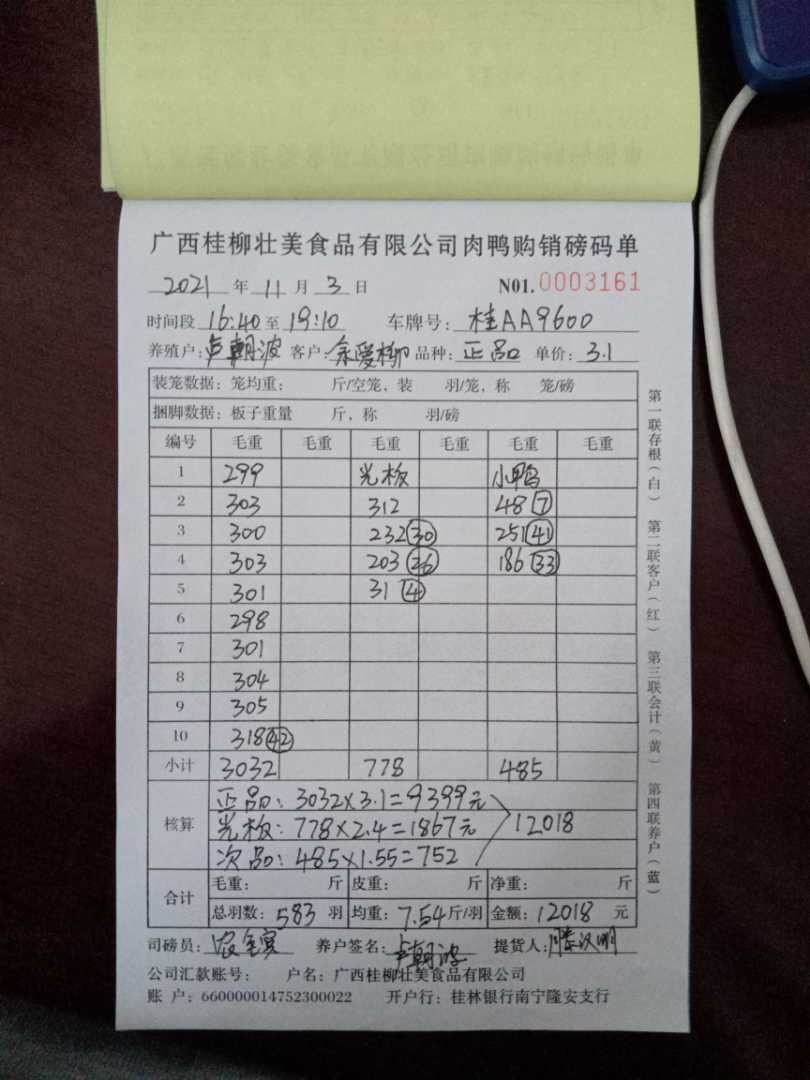 广西桂柳壮美食品有限公司肉鸭购销磅码单
2021 年 11 月 3 日 N01. 0003161
时间段 16:40 至 19:10 车牌号: 桂AA9600
养殖户: 卢朝波 客户: 余爱柳 品种: 正品 单价: 3.1
装笼数据: 笼均重: 斤/空笼, 装 羽/笼, 称 笼/磅
捆脚数据: 板子重量 斤, 称 羽/磅
编号 毛重 毛重 毛重 毛重 毛重 毛重
1 299 光板 小鸭
2 303 312 48 ⑦
3 300 232 ㉚ 251 ㊶
4 303 203 ㉖ 186 ㉝
5 301 31 ④
6 298
7 301
8 304
9 305
10 318 ㊷
小计 3032 778 485
核算
正品: 3032×3.1=9399元
光板: 778×2.4=1867元 12018
次品: 485×1.55=752
合计
毛重: 斤 皮重: 斤 净重: 斤
总羽数: 583 羽 均重: 7.54 斤/羽 金额: 12018 元
司磅员: 养户签名: 卢朝波 提货人:
公司汇款账号: 户名: 广西桂柳壮美食品有限公司
账 户: 660000014752300022 开户行: 桂林银行南宁隆安支行
第一联存根(白) 第二联客户(红) 第三联会计(黄) 第四联养户(蓝)